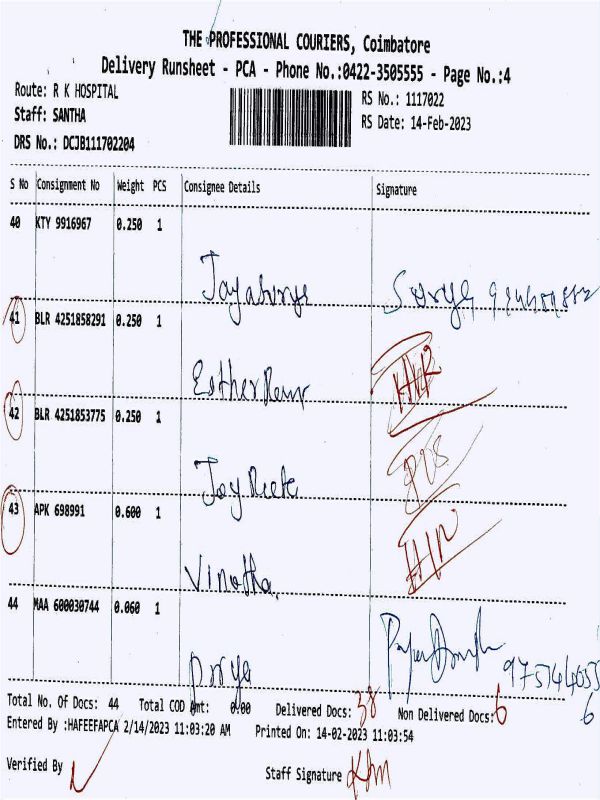 THE PROFESSIONAL COURIERS, Coimbatore
Delivery Runsheet - PCA - Phone No.:0422-3505555 - Page No.:4
Route: R K HOSPITAL
RS No.: 1117022
Staff: SANTHA
RS Date: 14-Feb-2023
DRS No.: DCJB111702204
S No Consignment No Weight PCS Consignee Details Signature
40 KTY 9916967 0.250 1
Jayasurya Surya
41 BLR 4251858291 0.250 1
Esther Rani
42 BLR 4251853775 0.250 1
Joy
43 APK 698991 0.600 1
Vinotha
44 MAA 600030744 0.060 1
priya
Total No. Of Docs: 44 Total COD Amt: 0.00 Delivered Docs: 38 Non Delivered Docs: 6
Entered By :HAFEEFAPCA 2/14/2023 11:03:20 AM Printed On: 14-02-2023 11:03:54
Verified By
Staff Signature